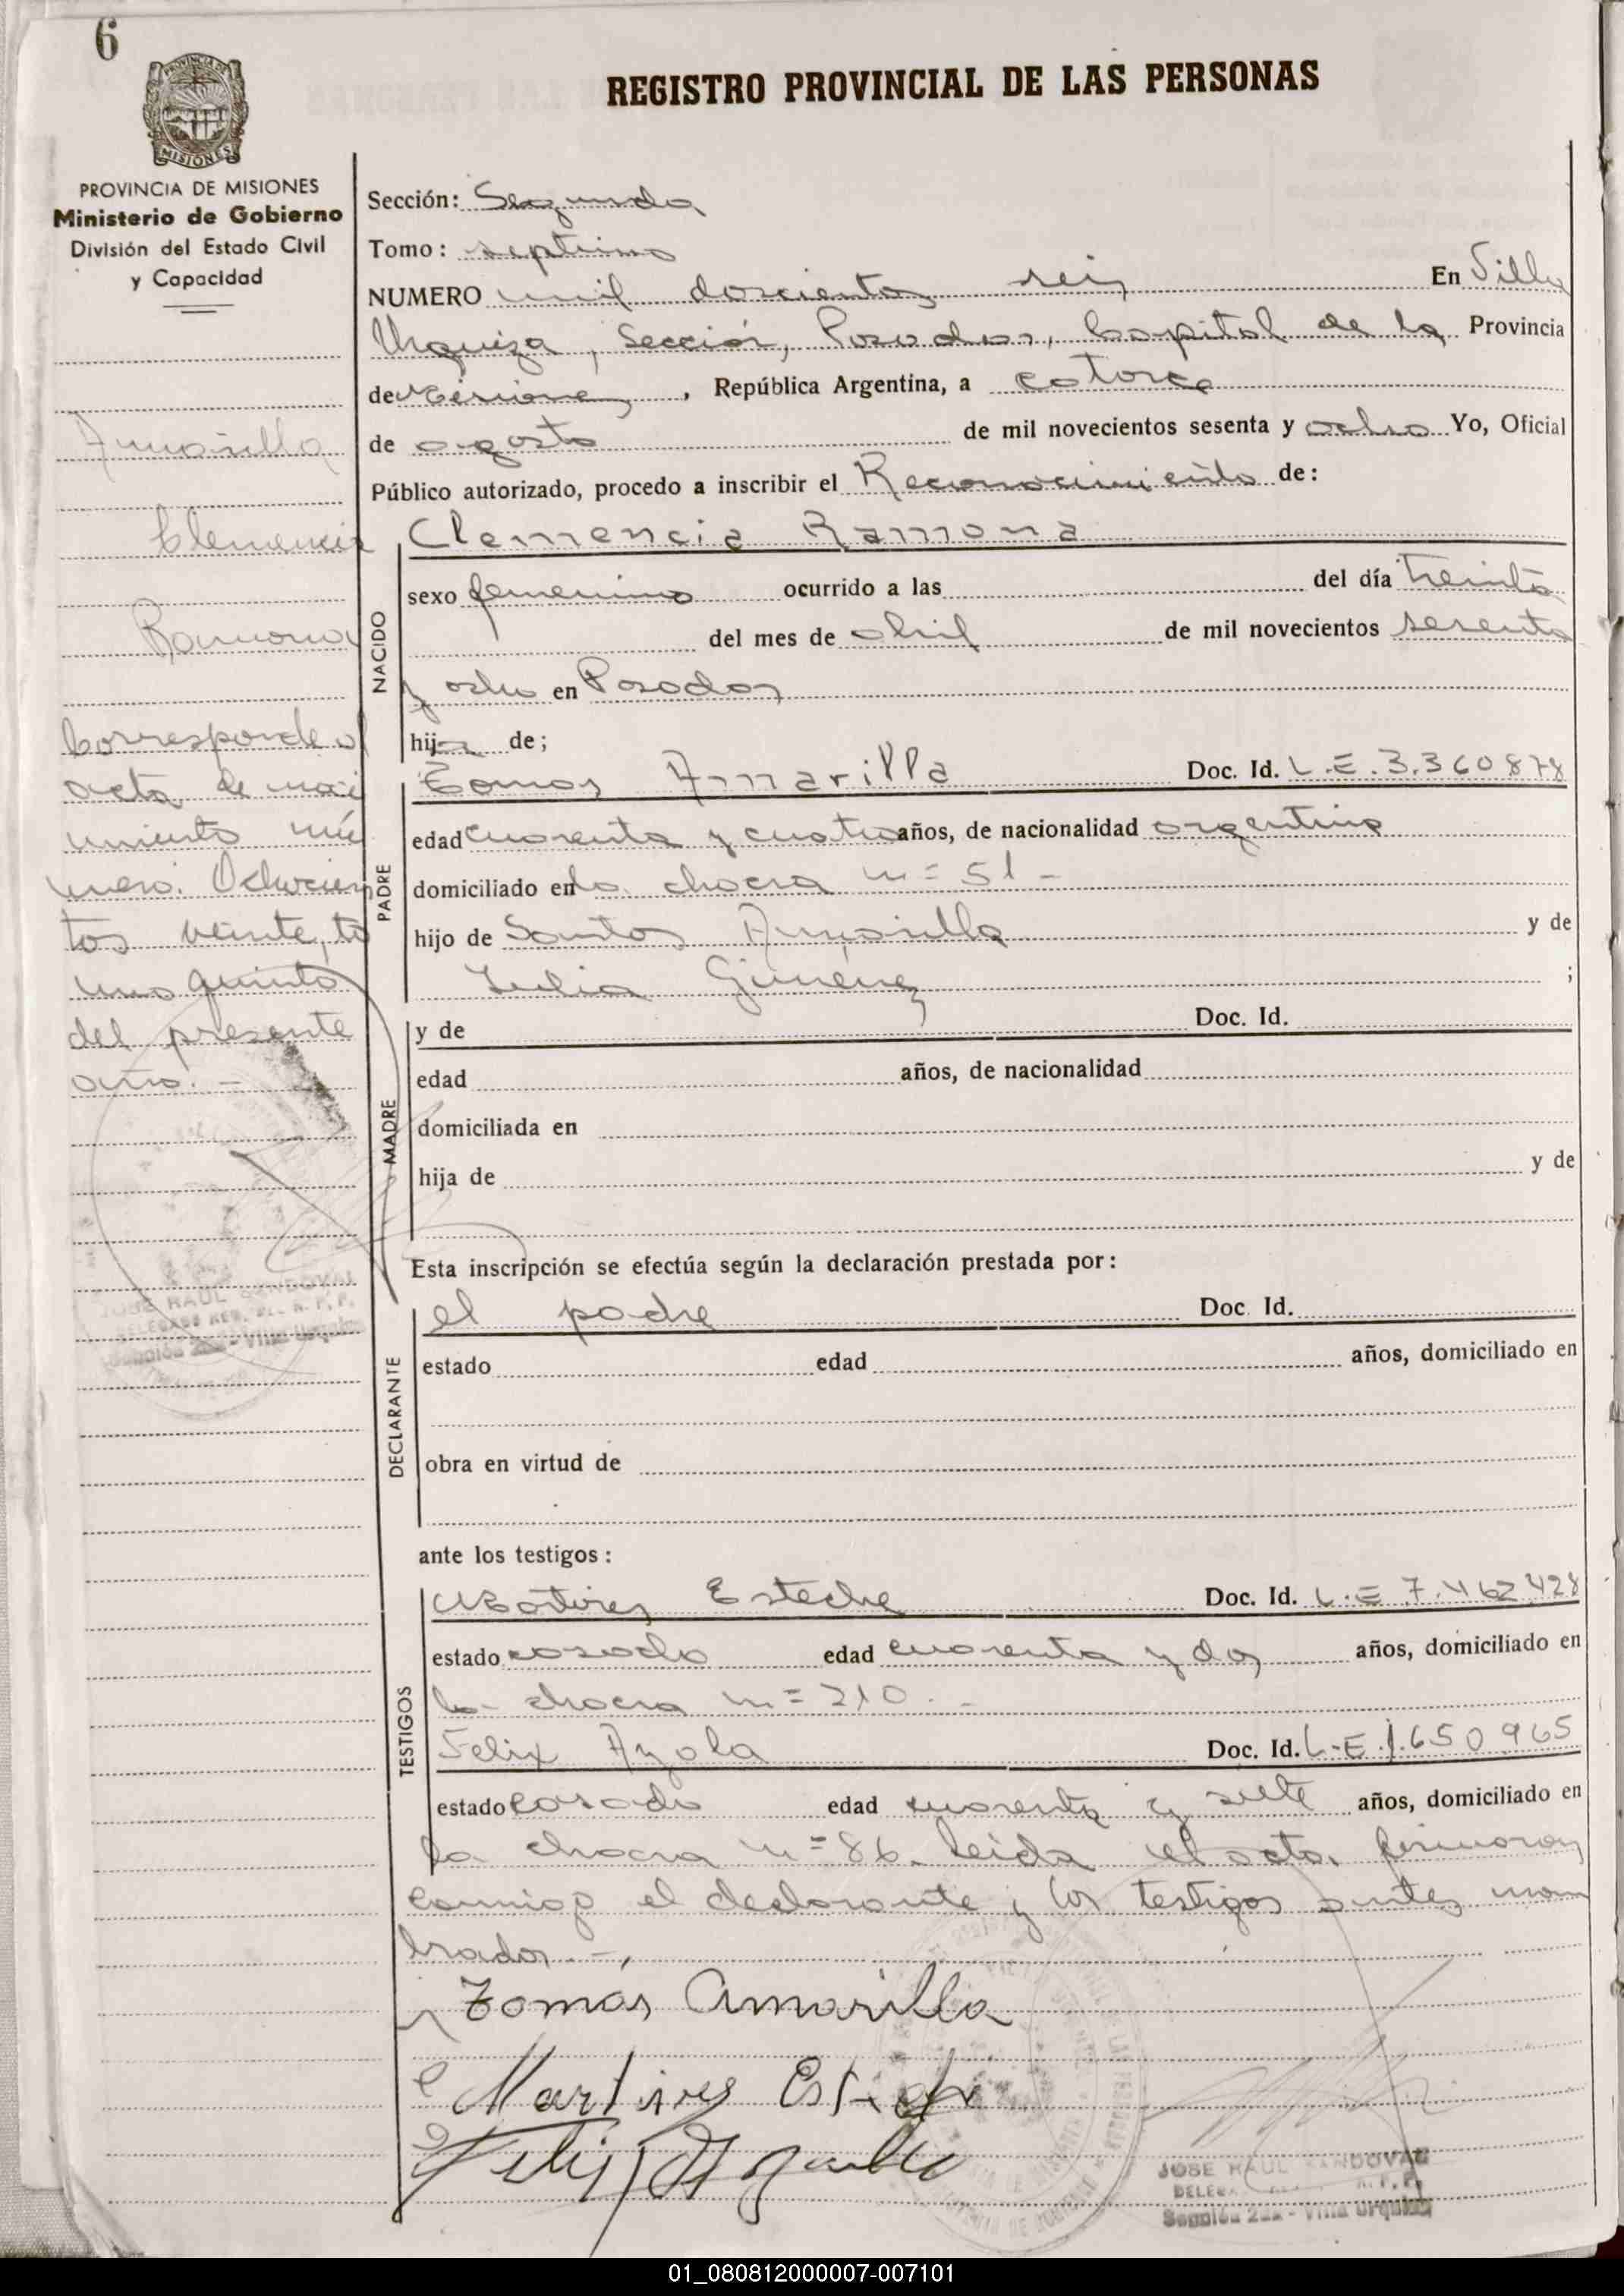 6
REGISTRO PROVINCIAL DE LAS PERSONAS
MISIONES
PROVINCIA DE MISIONES
Ministerio de Gobierno
División del Estado Civil
y Capacidad
Amarilla
Clemencia
Ramona
Corresponde al
acta de naci
miento nú
mero. Ochocien
tos veinte, to
mo quinto
del presente
año. -
JOSE RAUL SANDOVAL
Sección 2da - Villa Urquiza
Sección: Segunda
Tomo: septimo
NUMERO mil doscientos seis En Villa
Urquiza, Sección, Posadas, Capital de la Provincia
de Misiones, República Argentina, a catorce
de agosto de mil novecientos sesenta y ocho Yo, Oficial
Público autorizado, procedo a inscribir el Reconocimiento de:
NACIDO
Clemencia Ramona
sexo femenino ocurrido a las del día treinta
del mes de abril de mil novecientos sesenta
y ocho en Posadas
hija de;
PADRE
Tomas Amarilla Doc. Id. L.E. 3.360878
edad cuarenta y cuatro años, de nacionalidad argentino
domiciliado en la chacra n= 51 -
hijo de Santos Amarilla y de
Julia Giménez ;
MADRE
y de Doc. Id.
edad años, de nacionalidad
domiciliada en
hija de y de
Esta inscripción se efectúa según la declaración prestada por:
DECLARANTE
el padre Doc. Id.
estado edad años, domiciliado en
obra en virtud de
ante los testigos:
TESTIGOS
Martires Esteche Doc. Id. L.E 7.462428
estado casado edad cuarenta y dos años, domiciliado en
la chacra n= 210. -
Felix Ayala Doc. Id. L-E 1.650965
estado casado edad cuarenta y siete años, domiciliado en
la chacra n= 86. Leida el acta, firmaron
conmigo el declarante y los testigos antes nom
brados. -
Tomás Amarilla
Martires Esteche
Felix Ayala
JOSE RAUL SANDOVAL
Sección 2da - Villa Urquiza
01_080812000007-007101